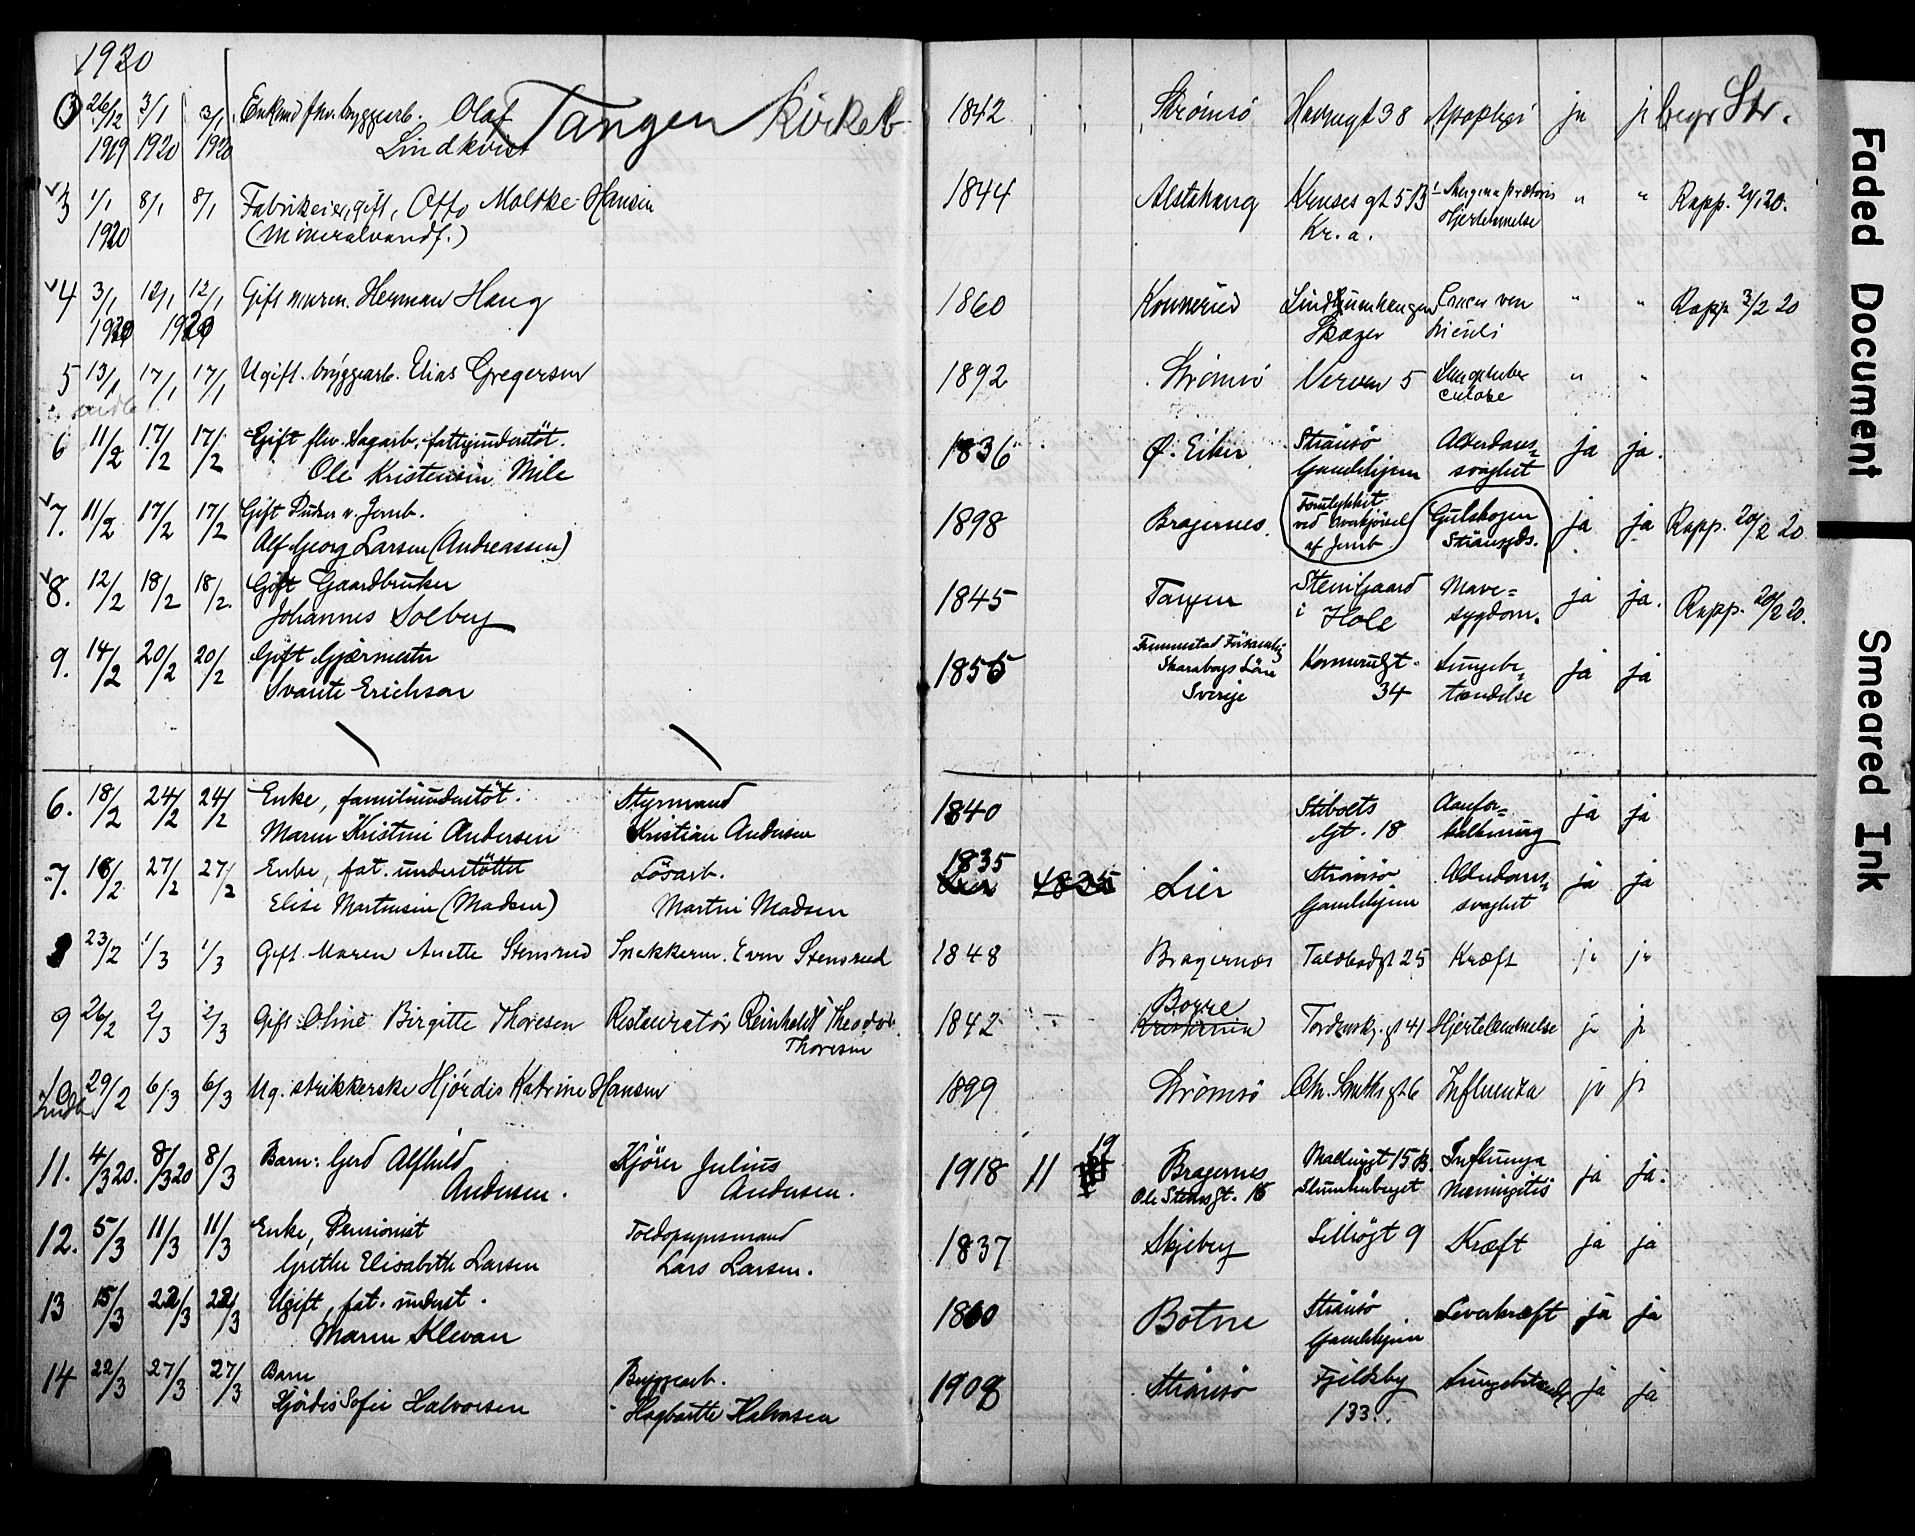 1920
3 26/12 3/1 3/1 Enkemd fhv. bryggearb. Olaf Tangen Kirkeb 1842 Strømsö Havnegt 38 Apoplexi ja ja begr Str.
1919 1920 1920 Lindkvist
3 1/1 8/1 8/1 Fabrikeier, gift, Otto Moltke Hansen 1844 Alstahaug Kruses gt 5B Hjertelammelse " " Rapp. 20.
1920 (Mineralvandf.) Kr.a.
4 3/1 12/1 12/1 Gift murm. Herman Haug 1860 Konnerud Skoger Cancer ven " " Rapp. 3/2 20
1920 1920 triculi
5 13/1 17/1 17/1 Ugift. bryggearb. Elias Gregersen 1892 Strömsö Verven 5 " "
6 11/2 17/2 17/2 Gift flv. Sagarb. fattigunderstöt. 1836 Ø. Eiker Strömsö Alderdoms= ja ja.
Ole Kristensen Mile Gamlehjem svaghet
7. 11/2 17/2 17/2 Gift Pudser v. Jernb. 1898 Bragernes. Forulykket Gulskogen ja ja Rapp. 20/2 20
Alf Georg Larsen (Andreassen) ved overkjörsel af Jernb. Strömsgds.
8. 12/2 18/2 18/2. Gift Gaardbruker 1845 Tangen Stensgaard Mave= ja ja. Rapp. 20/2 20.
Johannes Solberg i Hole sygdom.
9. 14/2 20/2 20/2 Gift Gjærmester 1855 Församling Konnerudgt. Lungebe= ja ja
Svante Erichson Skaraborgs Län Sverige 34 tændelse
6. 18/2 24/2 24/2 Enke, familieunderstöt. Styrmand 1840 Stibolts Aarefor= ja ja
Maren Kristine Andersen Kristian Andersen gt. 18 kalkning
7. 18/2 27/2 27/2 Enke, fat. understöttet Lösarb. 1835 1835 Lier Strömsö Alderdoms= ja ja
Elise Martinsen (Madsen) Martin Madsen Gamlehjem svaghet
8 23/2 1/3 1/3 Gift Maren Anette Stensrud Snekkerm. Even Stensrud 1848 Bragernæs Toldbodgt 25 Kræft ja ja
9 26/2 2/3 2/3 Gift Oline Birgitte Thoresen Restauratör Reinholdt Theodor 1842 Borre Kristiania Tordenskj. gt 41 Hjertelammelse ja ja
Thoresen
10 29/2 6/3 6/3 Ug. strikkerske Hjördis Katrine Hansen 1899 Strömsö Chr. Smiths gt 6 Influenza ja ja
Indb
11. 4/3 20. 8/3 20 8/3 Barn: Gerd Alfhild Kjörer Julius 1918 11 19 Bragernes 15 B. Influenza ja ja.
Andersen. Andersen. Ole Steens gt. 15 Meningitis
12. 5/3 11/3 11/3 Enke, Pensionist Toldopsynsmand 1837 Skjeberg 9 Kræft ja ja
Grethe Elisabeth Larsen Lars Larsen.
13 15/3 22/3 22/3 Ugift, fat. underst. 1860 Botne Strömsö Leverkræft ja ja
Maren Klevan Gamlehjem
14 22/3 27/3 27/3 Barn Bryggearb. 1908 Strömsö Fjeldsby Lungebetændelse ja ja
Hjördis Sofie Halvorsen Hagbarth Halvorsen 133.
Faded Document
Smeared Ink